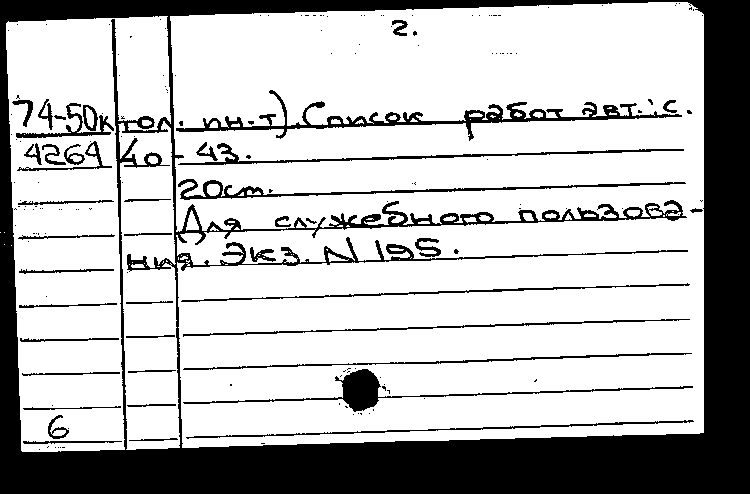 2.
74-50к тол. ин-т). Список работ авт.: с.
4264 40-43.
20 см.
Для служебного пользова-
ния. Экз. N 195.
6